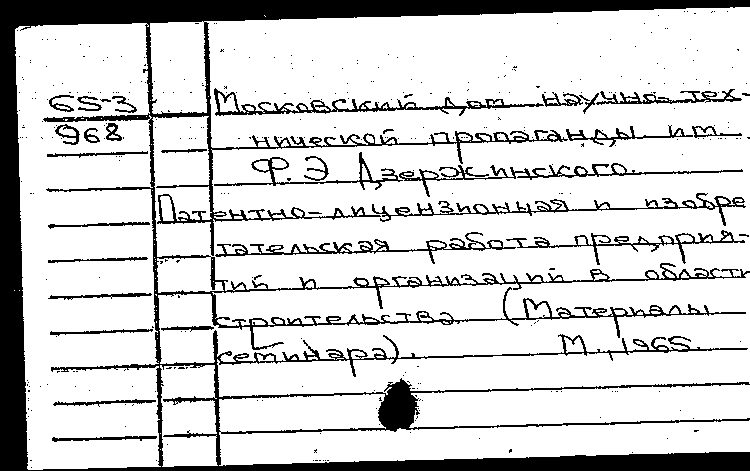 65-3 Московский дом научно-тех-
968 нической пропаганды им.
Ф.Э Дзержинского.
Патентно-лицензионная и изобре
тательская работа предприя-
тий и организаций в области
строительства. (Материалы
семинара). М., 1965.